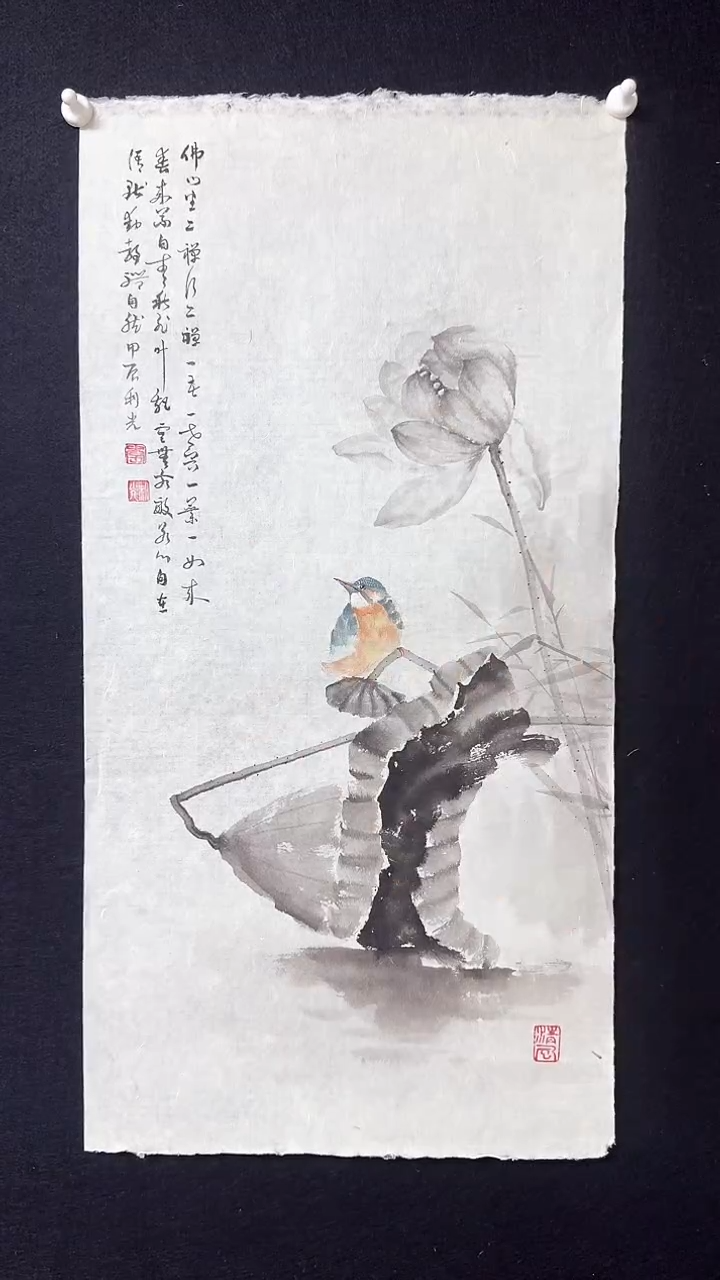 佛心坐亦禅行亦禅一花一世界一葉一如来
春来花自青秋至叶飘零無穷般若心自在
语默動静體自然甲辰利光